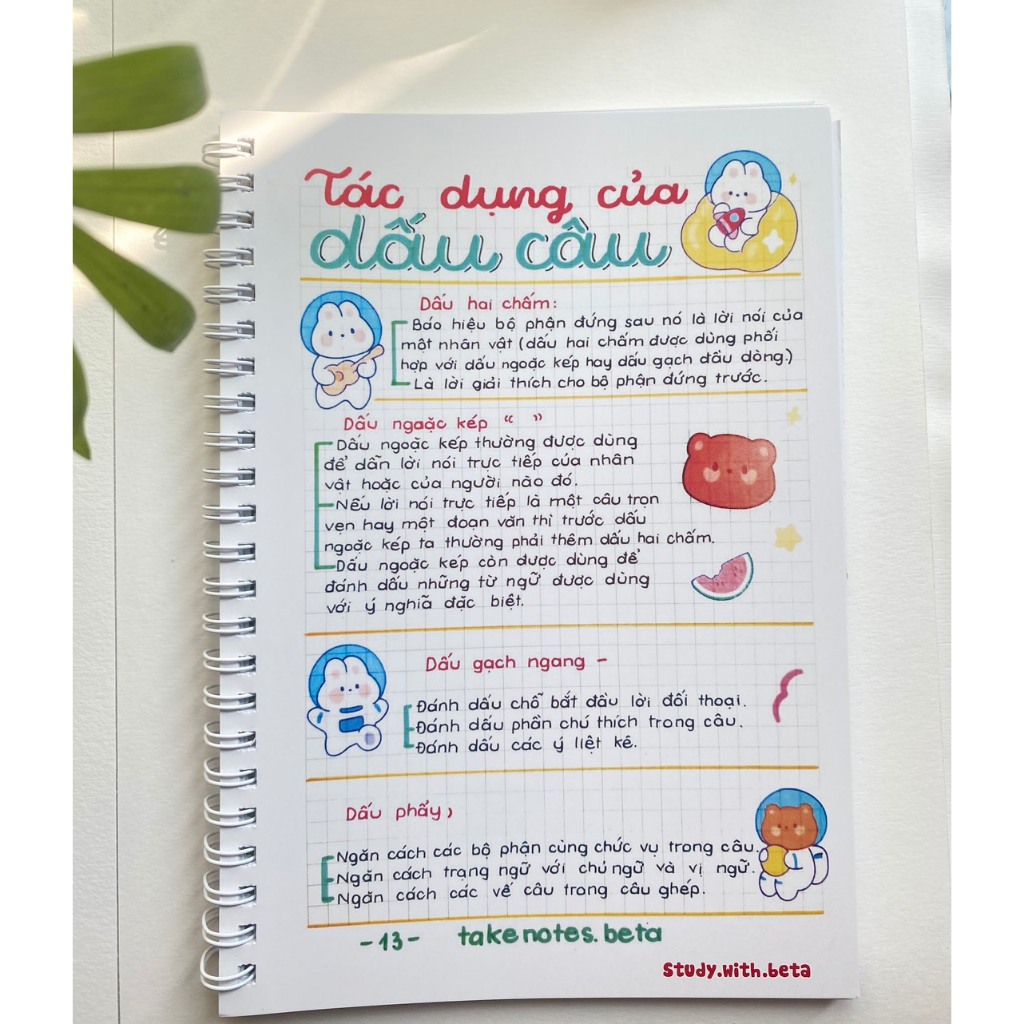 Tác dụng của
dấu câu
Dấu hai chấm:
Báo hiệu bộ phận đứng sau nó là lời nói của
một nhân vật (dấu hai chấm được dùng phối
hợp với dấu ngoặc kép hay dấu gạch đầu dòng.)
Là lời giải thích cho bộ phận đứng trước.
Dấu ngaặc kép “ ”
Dấu ngoặc kép thường được dùng
để dẫn lời nói trực tiếp của nhân
vật hoặc của người nào đó.
Nếu lời nói trực tiếp là một câu trọn
vẹn hay một đoạn văn thì trước dấu
ngoặc kép ta thường phải thêm dấu hai chấm.
Dấu ngoặc kép còn được dùng để
đánh dấu những từ ngữ được dùng
với ý nghĩa đặc biệt.
Dấu gạch ngang –
Đánh dấu chỗ bắt đầu lời đối thoại.
Đánh dấu phần chú thích trong câu.
Đánh dấu các ý liệt kê.
Dấu phẩy,
Ngăn cách các bộ phận cùng chức vụ trong câu.
Ngăn cách trạng ngữ với chủ ngữ và vị ngữ.
Ngăn cách các vế câu trong câu ghép.
-13- takenotes.beta
Study.with.beta